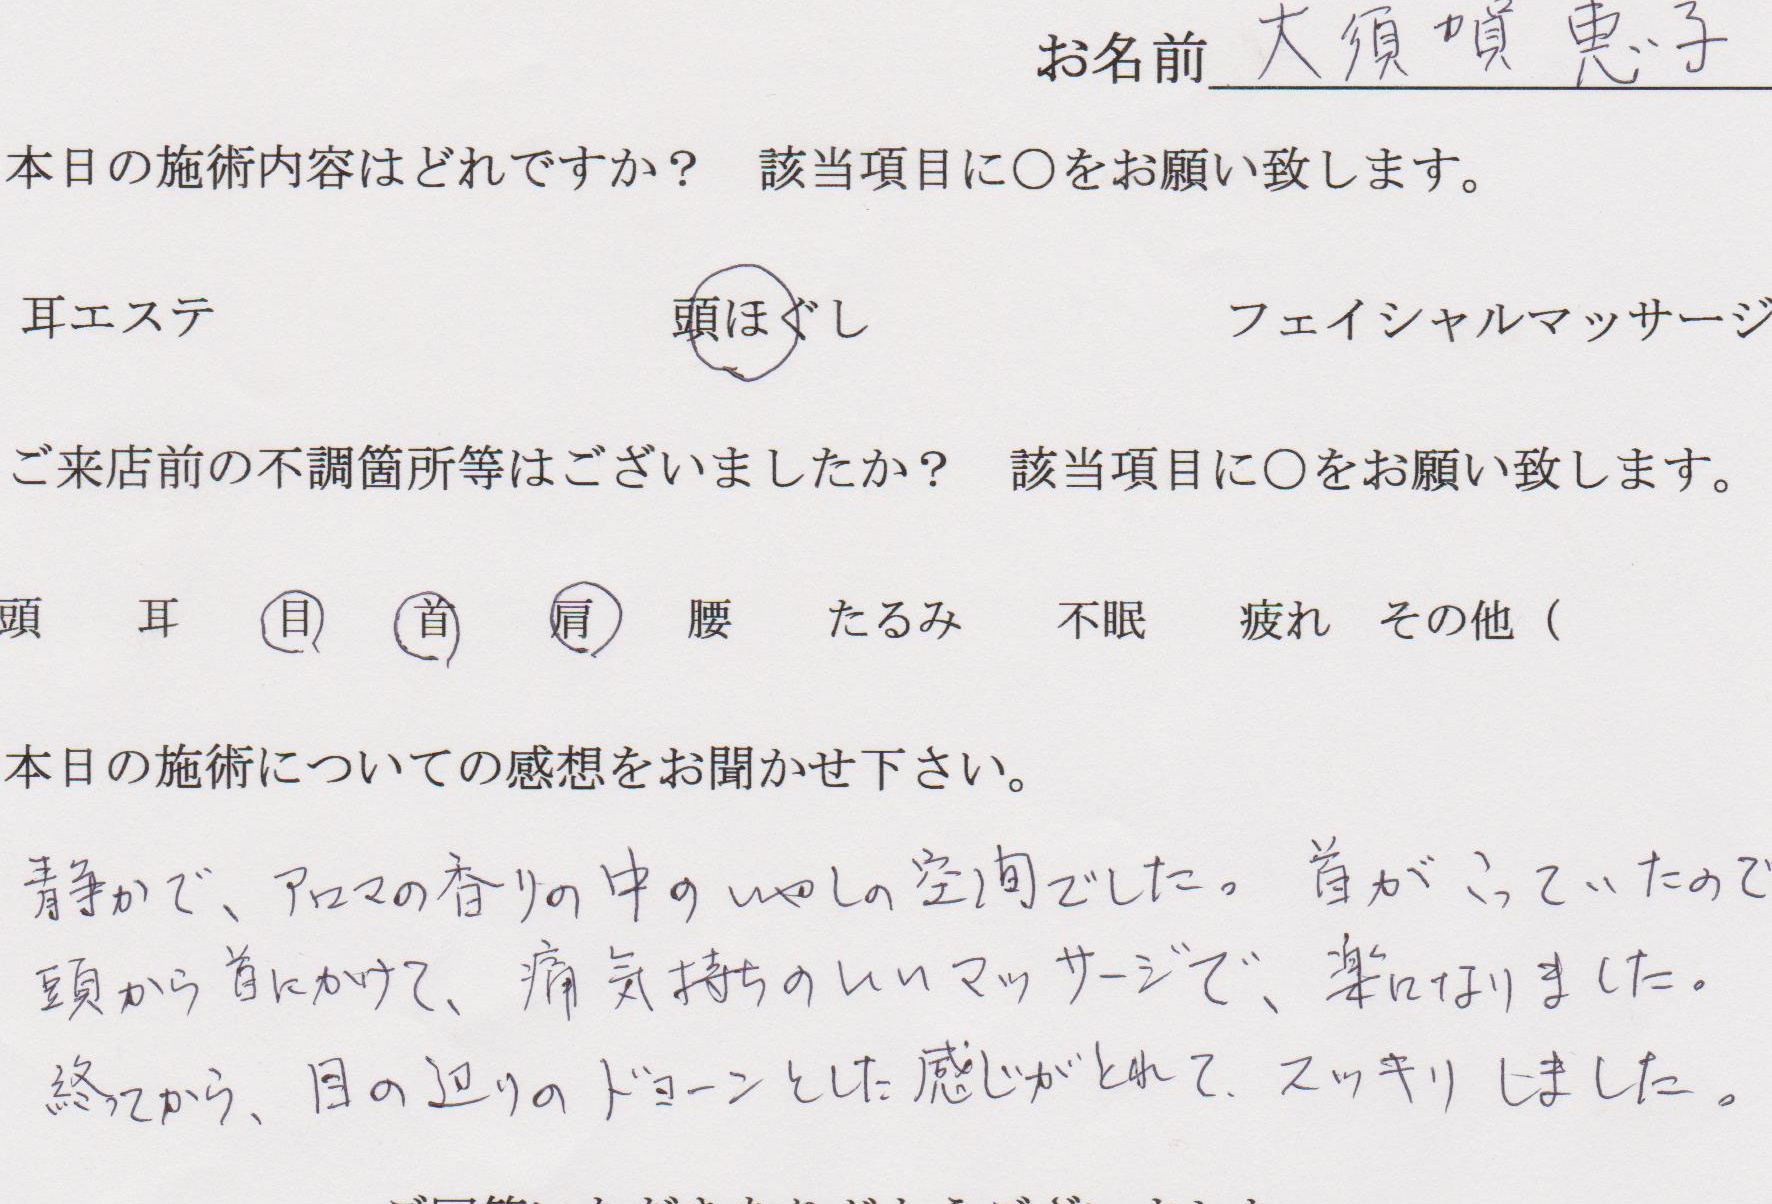 お名前 大須賀 恵子
本日の施術内容はどれですか？ 該当項目に○をお願い致します。
耳エステ 頭ほぐし フェイシャルマッサージ
ご来店前の不調箇所等はございましたか？ 該当項目に○をお願い致します。
頭 耳 目 首 肩 腰 たるみ 不眠 疲れ その他（
本日の施術についての感想をお聞かせ下さい。
静かで、アロマの香りの中のいやしの空間でした。首がこっていたので
頭から首にかけて、痛気持ちのいいマッサージで、楽になりました。
終ってから、目の辺りのドヨーンとした感じがとれて、スッキリしました。